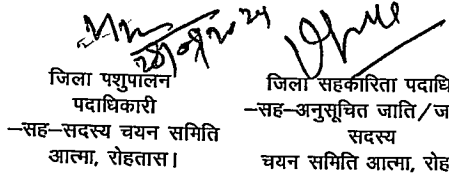 जिला पशुपालन
पदाधिकारी
–सह–सदस्य चयन समिति
आत्मा, रोहतास।
जिला सहकारिता पदाधि
–सह–अनुसूचित जाति/ज
सदस्य
चयन समिति आत्मा, रोह